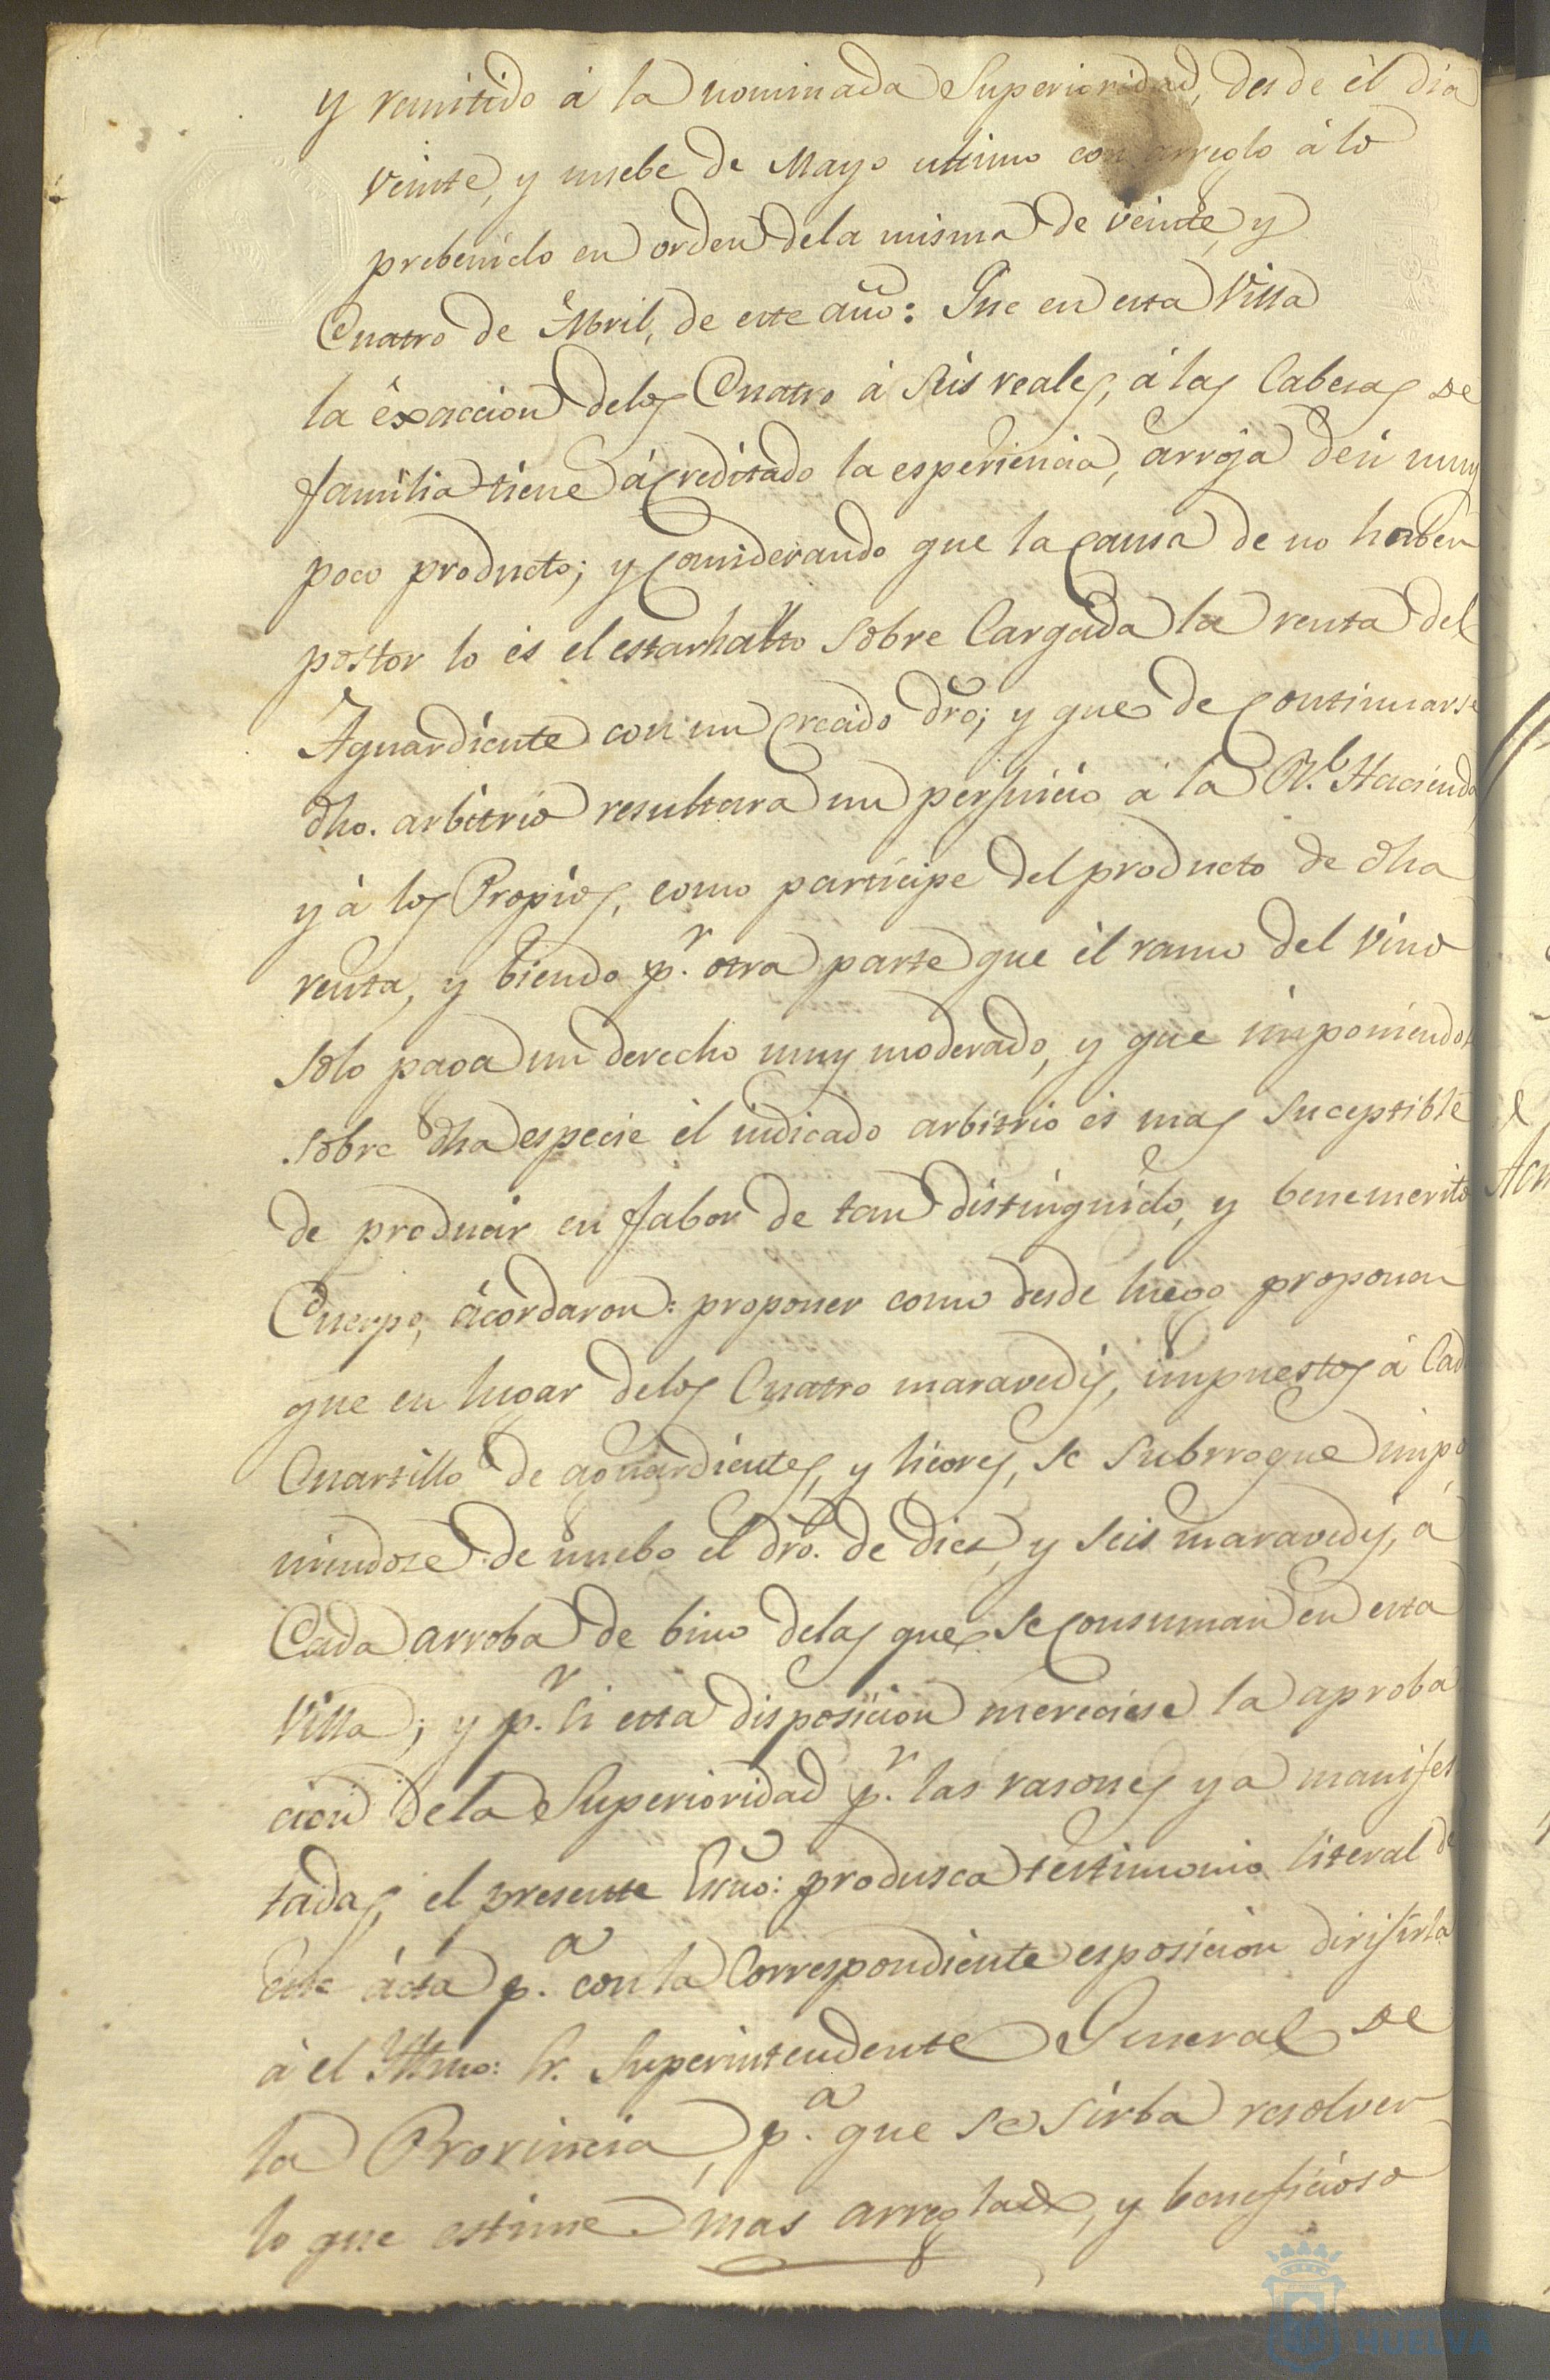 y remitido á la nominada Superioridad, desde él dia
veinte, y nuebe de Mayo ultimo con arreglo á lo
prebenido en orden dela misma de veinte, y
Cuatro de Abril, de este año: Que en esta Villa
la éxaccion delos Cuatro á Seis reales, á las Cabesas de
familia tiene ácreditado la esperiencia, arroja dén muy
poco producto; y Considerando que la Causa de no haber
postor lo és el estar harto Sobre Cargada la renta del
Aguardiente con un Crecido dro; y que de Continuarse
dho. arbitrio resultara un perjuicio á la Rl. Hacienda,
y á los Propios, como participe del producto de dha
renta, y biendo pr. otra parte que él ramo del Vino
Solo paga un derecho muy moderado, y que imponiendo
Sobre dha especie él indicado arbitrio és mas Suceptible
de producir en fabor de tan distinguido, y benemerito
Cuerpo, ácordaron: proponer como desde luego proponen
que en lugar delos Cuatro maravedis, impuestos á Cad
Cuartillo de aguardientes, y licores, se Subrrogue impo
niendose de nuebo el dro. de dies, y Seis maravedis, á
Cada arroba de bino delas que se Consuman en esta
Villa; y pr. si esta disposicion mereciese la aproba
cion dela Superioridad pr. las rasones ya manifes
tadas, el presente Essno: produsca testimonio literal de
este ácta pa. con la Correspondiente esposicion dirijirla
á el Yltmo: Sr. Superintendente General de
la Provincia, pa. que se sirba resolver
lo que estime mas arreglado, y beneficioso
HUELVA